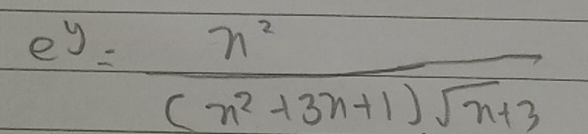 e^y = x²
(x² + 3x + 1) √x + 3